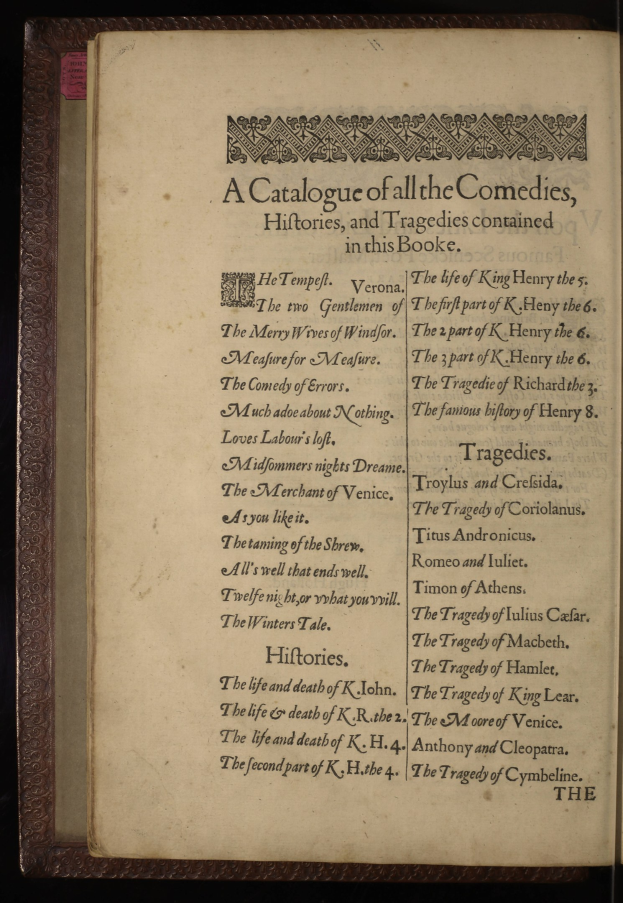 A Catalogue of all the Comedies,
Hiſtories, and Tragedies contained
in this Booke.
THe Tempeſt.
The two Gentlemen of Verona.
The Merry Wives of Windſor.
Meaſure for Meaſure.
The Comedy of Errors.
Much adoe about Nothing.
Loves Labour's loſt.
Midſommers nights Dreame.
The Merchant of Venice.
As you like it.
The taming of the Shrew.
All's well that ends well.
Twelfe night, or vvhat you vvill.
The Winters Tale.
Hiſtories.
The life and death of K. Iohn.
The life & death of K. R. the 2.
The life and death of K. H. 4.
The ſecond part of K. H. the 4.
The life of King Henry the 5.
The firſt part of K. Heny the 6.
The 2 part of K. Henry the 6.
The 3 part of K. Henry the 6.
The Tragedie of Richard the 3.
The famous hiſtory of Henry 8.
Tragedies.
Troylus and Creſsida.
The Tragedy of Coriolanus.
Titus Andronicus.
Romeo and Iuliet.
Timon of Athens.
The Tragedy of Iulius Cæſar.
The Tragedy of Macbeth.
The Tragedy of Hamlet.
The Tragedy of King Lear.
The Moore of Venice.
Anthony and Cleopatra.
The Tragedy of Cymbeline.
THE